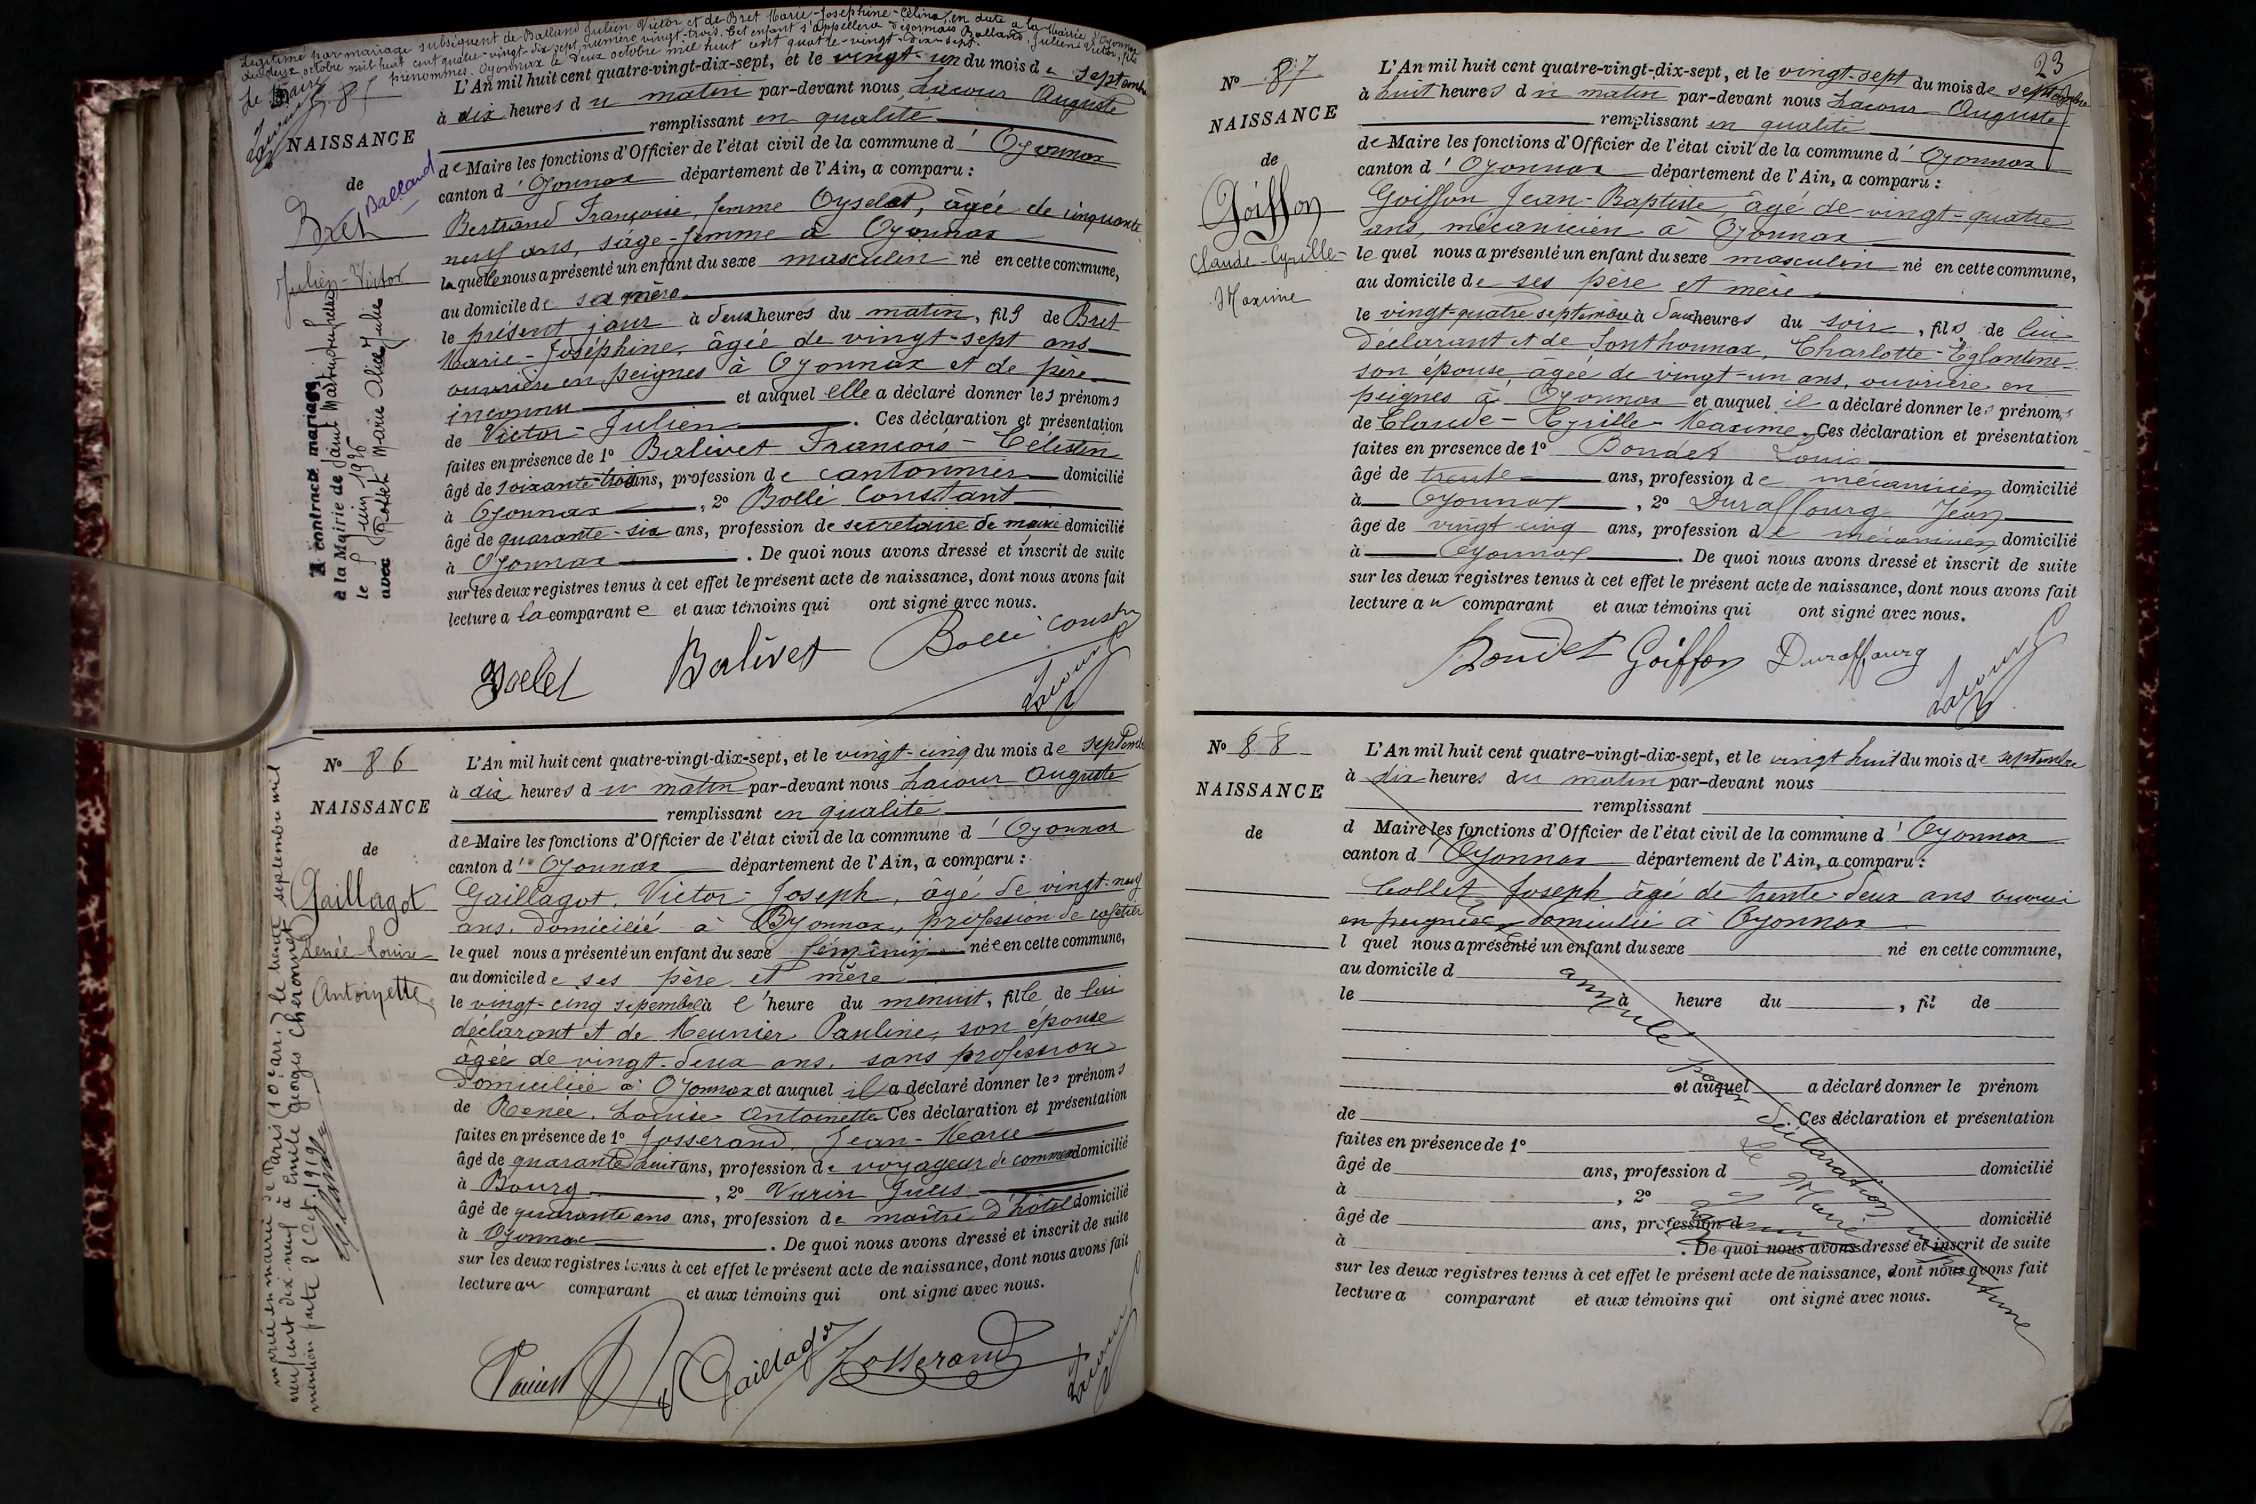 Légitimé par mariage subséquent de Balland Julien Victor et de Bret Marie-Joséphine-Célina, en date à la Mairie d'Oyonnax
du deux octobre mil huit cent quatre-vingt-dix sept, numéro vingt-trois. Cet enfant s'appellera désormais Balland Julien Victor, fils
prénommés. Oyonnax le deux octobre mil huit cent quatre-vingt-dix-sept.
Le Maire
Lacour
85
NAISSANCE
de
Bret
Balland
Julien-Victor
A contracté mariage
à la Mairie de Saint Martin du
le juin 19
avec Rostet Marie Alice Julie
L'An mil huit cent quatre-vingt-dix-sept, et le vingt-un du mois de septembre
à dix heures du matin par-devant nous Lacour Auguste
remplissant en qualité
de Maire les fonctions d'Officier de l'état civil de la commune d'Oyonnax
canton d'Oyonnax département de l'Ain, a comparu :
Bertrand Françoise, femme Oyselet, âgée de cinquante
neuf ans, sage-femme à Oyonnax
laquelle nous a présenté un enfant du sexe masculin né en cette commune,
au domicile de sa mère
le présent jour à deux heures du matin, fils de Bret
Marie-Joséphine, âgée de vingt-sept ans
ouvrière en peignes à Oyonnax et de père
inconnu et auquel elle a déclaré donner les prénoms
de Victor-Julien. Ces déclaration et présentation
faites en présence de 1º Balivet François-Célestin
âgé de soixante-trois ans, profession de cantonnier domicilié
à Oyonnax, 2º Bollé Constant
âgé de quarante-six ans, profession de secrétaire de mairie domicilié
à Oyonnax. De quoi nous avons dressé et inscrit de suite
sur les deux registres tenus à cet effet le présent acte de naissance, dont nous avons fait
lecture a la comparante et aux témoins qui ont signé avec nous.
Balivet Bollé Const
Lacour
Nº 86
NAISSANCE
de
Gaillagot
Renée-Louise
Antoinette
mariée en mairie de Paris (10e arr.) le trente septembre mil
neuf cent dix-neuf à Emile Georges Cheronnet
mention faite 8 Oct. 1919
L'An mil huit cent quatre-vingt-dix-sept, et le vingt-cinq du mois de septembre
à dix heures du matin par-devant nous Lacour Auguste
remplissant en qualité
de Maire les fonctions d'Officier de l'état civil de la commune d'Oyonnax
canton d'Oyonnax département de l'Ain, a comparu :
Gaillagot, Victor-Joseph, âgé de vingt-neuf
ans, domicilié à Oyonnax, profession de cafetier
lequel nous a présenté un enfant du sexe féminin née en cette commune,
au domicile de ses père et mère
le vingt-cinq septembre à l'heure du menuit, fille de lui
déclarant et de Meunier Pauline, son épouse
âgée de vingt-deux ans, sans profession
domiciliée à Oyonnax et auquel il a déclaré donner les prénoms
de Renée, Louise Antoinette Ces déclaration et présentation
faites en présence de 1º Josserand, Jean-Marie
âgé de quarante huit ans, profession de voyageur de commerce domicilié
à Bourg, 2º Jules
âgé de quarante ans ans, profession de maître d'hôtel domicilié
à Oyonnax. De quoi nous avons dressé et inscrit de suite
sur les deux registres tenus à cet effet le présent acte de naissance, dont nous avons fait
lecture au comparant et aux témoins qui ont signé avec nous.
Gaillagot Josserand
Lacour
23
Nº 87
NAISSANCE
de
Goiffon
Claude-Cyrille-
Maxime
L'An mil huit cent quatre-vingt-dix-sept, et le vingt-sept du mois de septembre
à huit heures du matin par-devant nous Lacour Auguste
remplissant en qualité
de Maire les fonctions d'Officier de l'état civil de la commune d'Oyonnax
canton d'Oyonnax département de l'Ain, a comparu :
Goiffon Jean-Baptiste, âgé de vingt-quatre
ans, mécanicien à Oyonnax
lequel nous a présenté un enfant du sexe masculin né en cette commune,
au domicile de ses père et mère
le vingt-quatre septembre à deux heures du soir, fils de lui
déclarant et de Sonthonnax, Charlotte-Eglantine
son épouse âgée de vingt-un ans, ouvrière en
peignes à Oyonnax et auquel il a déclaré donner les prénoms
de Claude-Cyrille-Maxime. Ces déclaration et présentation
faites en présence de 1º Boudet Louis
âgé de trente ans, profession de mécanicien domicilié
à Oyonnax, 2º Duraffourg Jean
âgé de vingt cinq ans, profession de mécanicien domicilié
à Oyonnax. De quoi nous avons dressé et inscrit de suite
sur les deux registres tenus à cet effet le présent acte de naissance, dont nous avons fait
lecture au comparant et aux témoins qui ont signé avec nous.
Boudet Goiffon Duraffourg
Lacour
Nº 88
NAISSANCE
de
L'An mil huit cent quatre-vingt-dix-sept, et le vingt huit du mois de septembre
à dix heures du matin par-devant nous
remplissant
d Maire les fonctions d'Officier de l'état civil de la commune d'Oyonnax
canton d'Oyonnax département de l'Ain, a comparu :
Collet Joseph âgé de trente-deux ans ouvrier
en peignes domicilié à Oyonnax
l quel nous a présenté un enfant du sexe né en cette commune,
au domicile d
le à heure du , fil de
et auquel a déclaré donner le prénom
de Ces déclaration et présentation
faites en présence de 1º
âgé de ans, profession d domicilié
à , 2º
âgé de ans, profession d domicilié
à . De quoi nous avons dressé et inscrit de suite
sur les deux registres tenus à cet effet le présent acte de naissance, dont nous avons fait
lecture a comparant et aux témoins qui ont signé avec nous.
annulé par déclaration
Le Maire